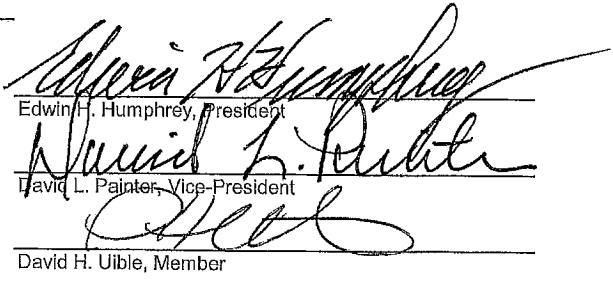 Edwin H Humphrey
Edwin H. Humphrey, President
David L. Painter
David L. Painter, Vice-President
David H. Uible, Member